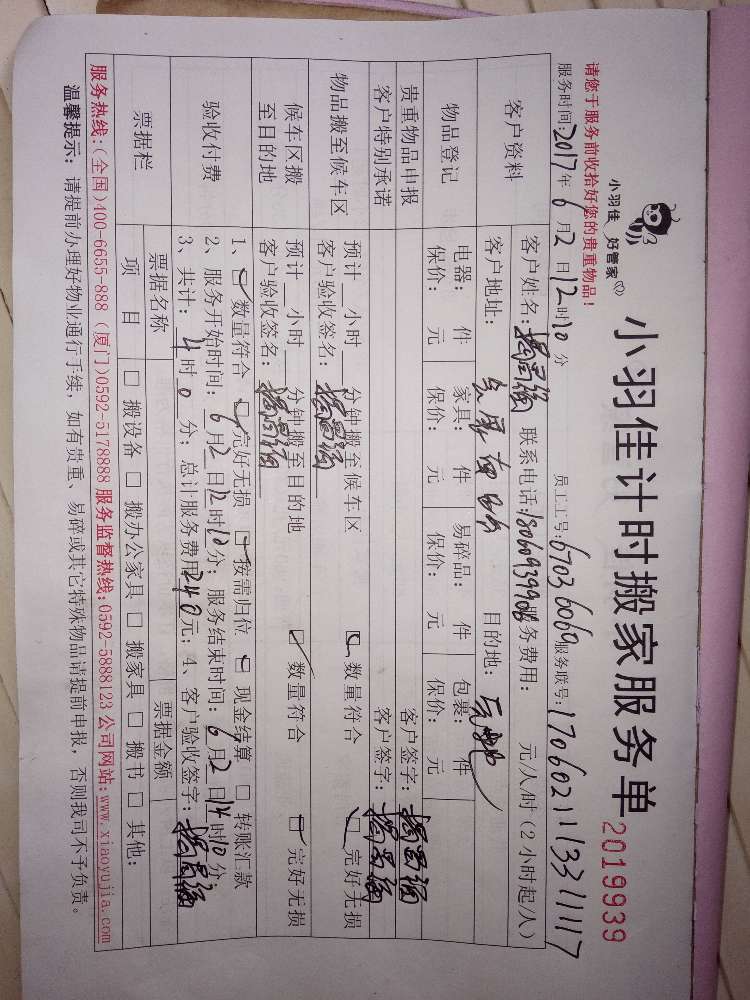 小羽佳 好管家
小羽佳计时搬家服务单 2019939
请您于服务前收拾好您的贵重物品!
服务时间:2017年6月2日12时10分 员工工号:67036069 服务联号:1706021113311117
客户资料 客户姓名: 联系电话:18060939906 服务费用: 元/人/时(2小时起/人)
客户地址: 目的地:
物品登记 电器: 件 家具: 件 易碎品: 件 包裹: 件
保价: 元 保价: 元 保价: 元 保价: 元
贵重物品申报 客户签字:
客户特别承诺 客户签字:
物品搬至候车区 预计 小时 分钟搬至候车区
客户验收签名: 数量符合 完好无损
候车区搬至目的地 预计 小时 分钟搬至目的地
客户验收签名: 数量符合 完好无损
验收付费 1、 数量符合 完好无损 按需归位 现金结算 转账汇款
2、服务开始时间:6月2日12时10分;服务结束时间:6月2日14时10分;
3、共计:4时0分;总计服务费用240元;4、客户验收签字:
票据栏 票据名称 票据金额
项目 搬设备 搬办公家具 搬家具 搬书 其他:
服务热线:(全国)400-6655-888 (厦门)0592-5178888 服务监督热线:0592-5888123 公司网站:www.xiaoyujia.com
温馨提示: 请提前办理好物业通行手续,如有贵重、易碎或其它特殊物品请提前申报,否则我司不予负责。